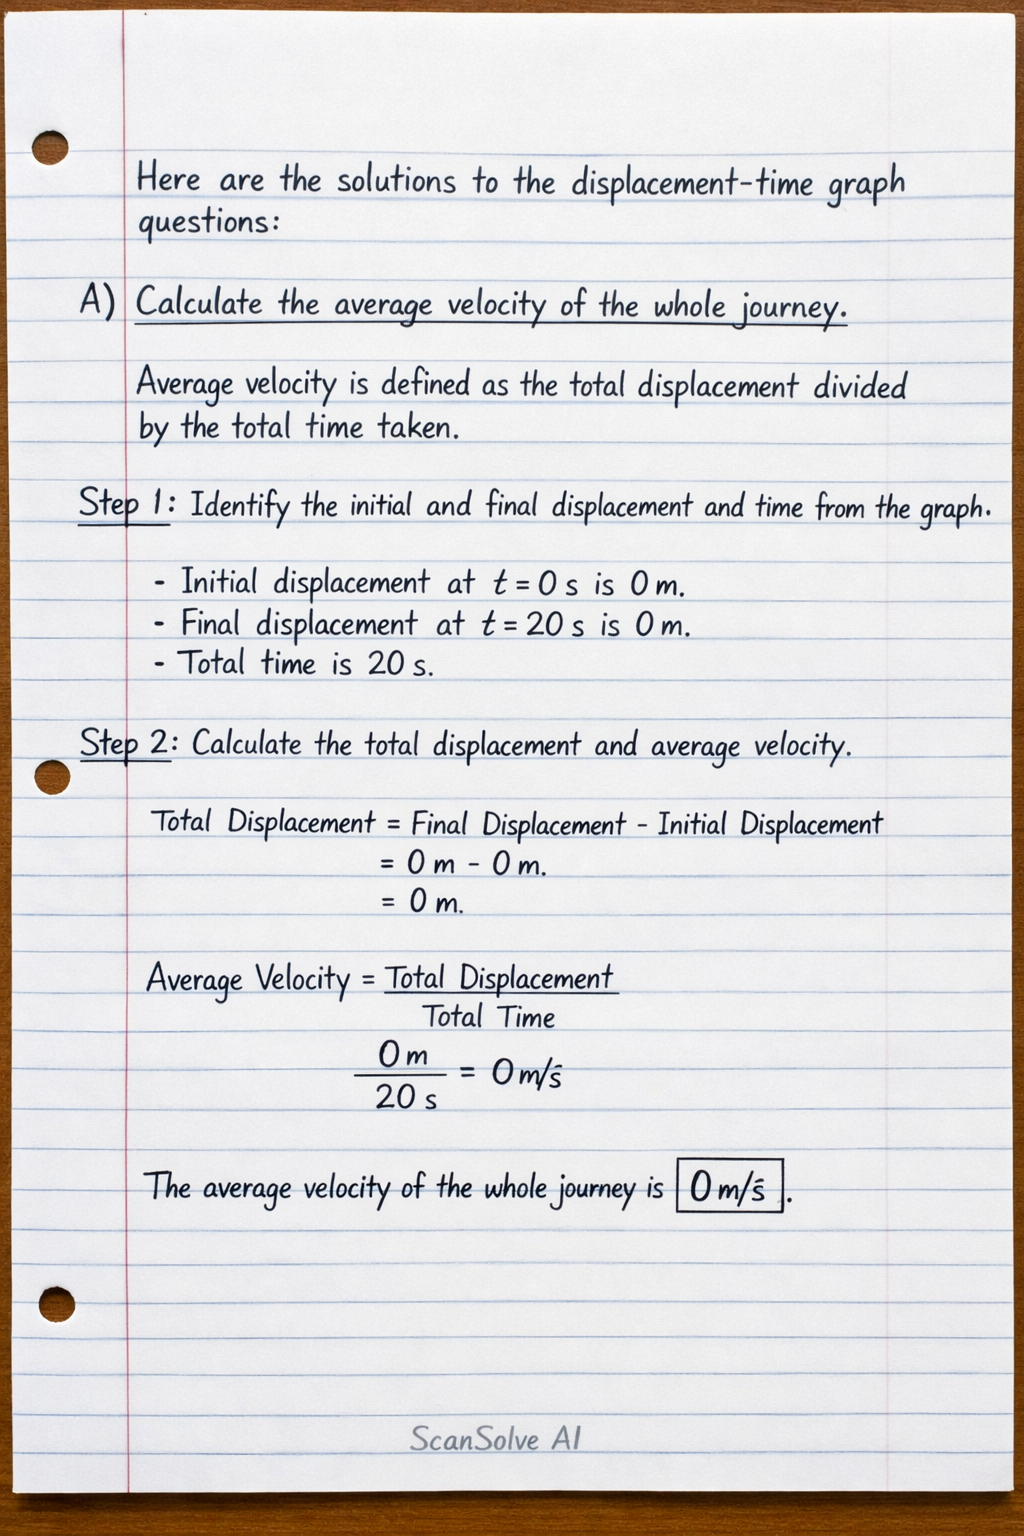 Here are the solutions to the displacement-time graph
questions:
A) Calculate the average velocity of the whole journey.
Average velocity is defined as the total displacement divided
by the total time taken.
Step 1: Identify the initial and final displacement and time from the graph.
- Initial displacement at t = 0 s is 0 m.
- Final displacement at t = 20 s is 0 m.
- Total time is 20 s.
Step 2: Calculate the total displacement and average velocity.
Total Displacement = Final Displacement - Initial Displacement
= 0 m - 0 m.
= 0 m.
Average Velocity = Total Displacement
Total Time
0 m
20 s
= 0 m/s̄
The average velocity of the whole journey is 0 m/s̄.
ScanSolve AI